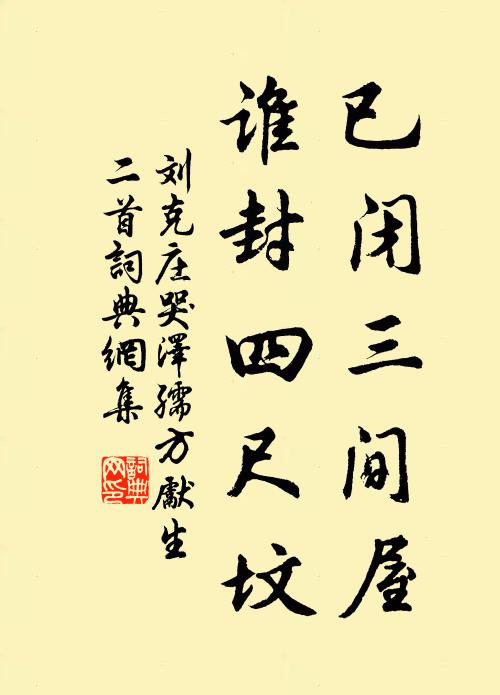 已闭三间屋
谁封四尺坟
刘克庄哭澤孺方獻生
二首詞典網集
詞典
网印